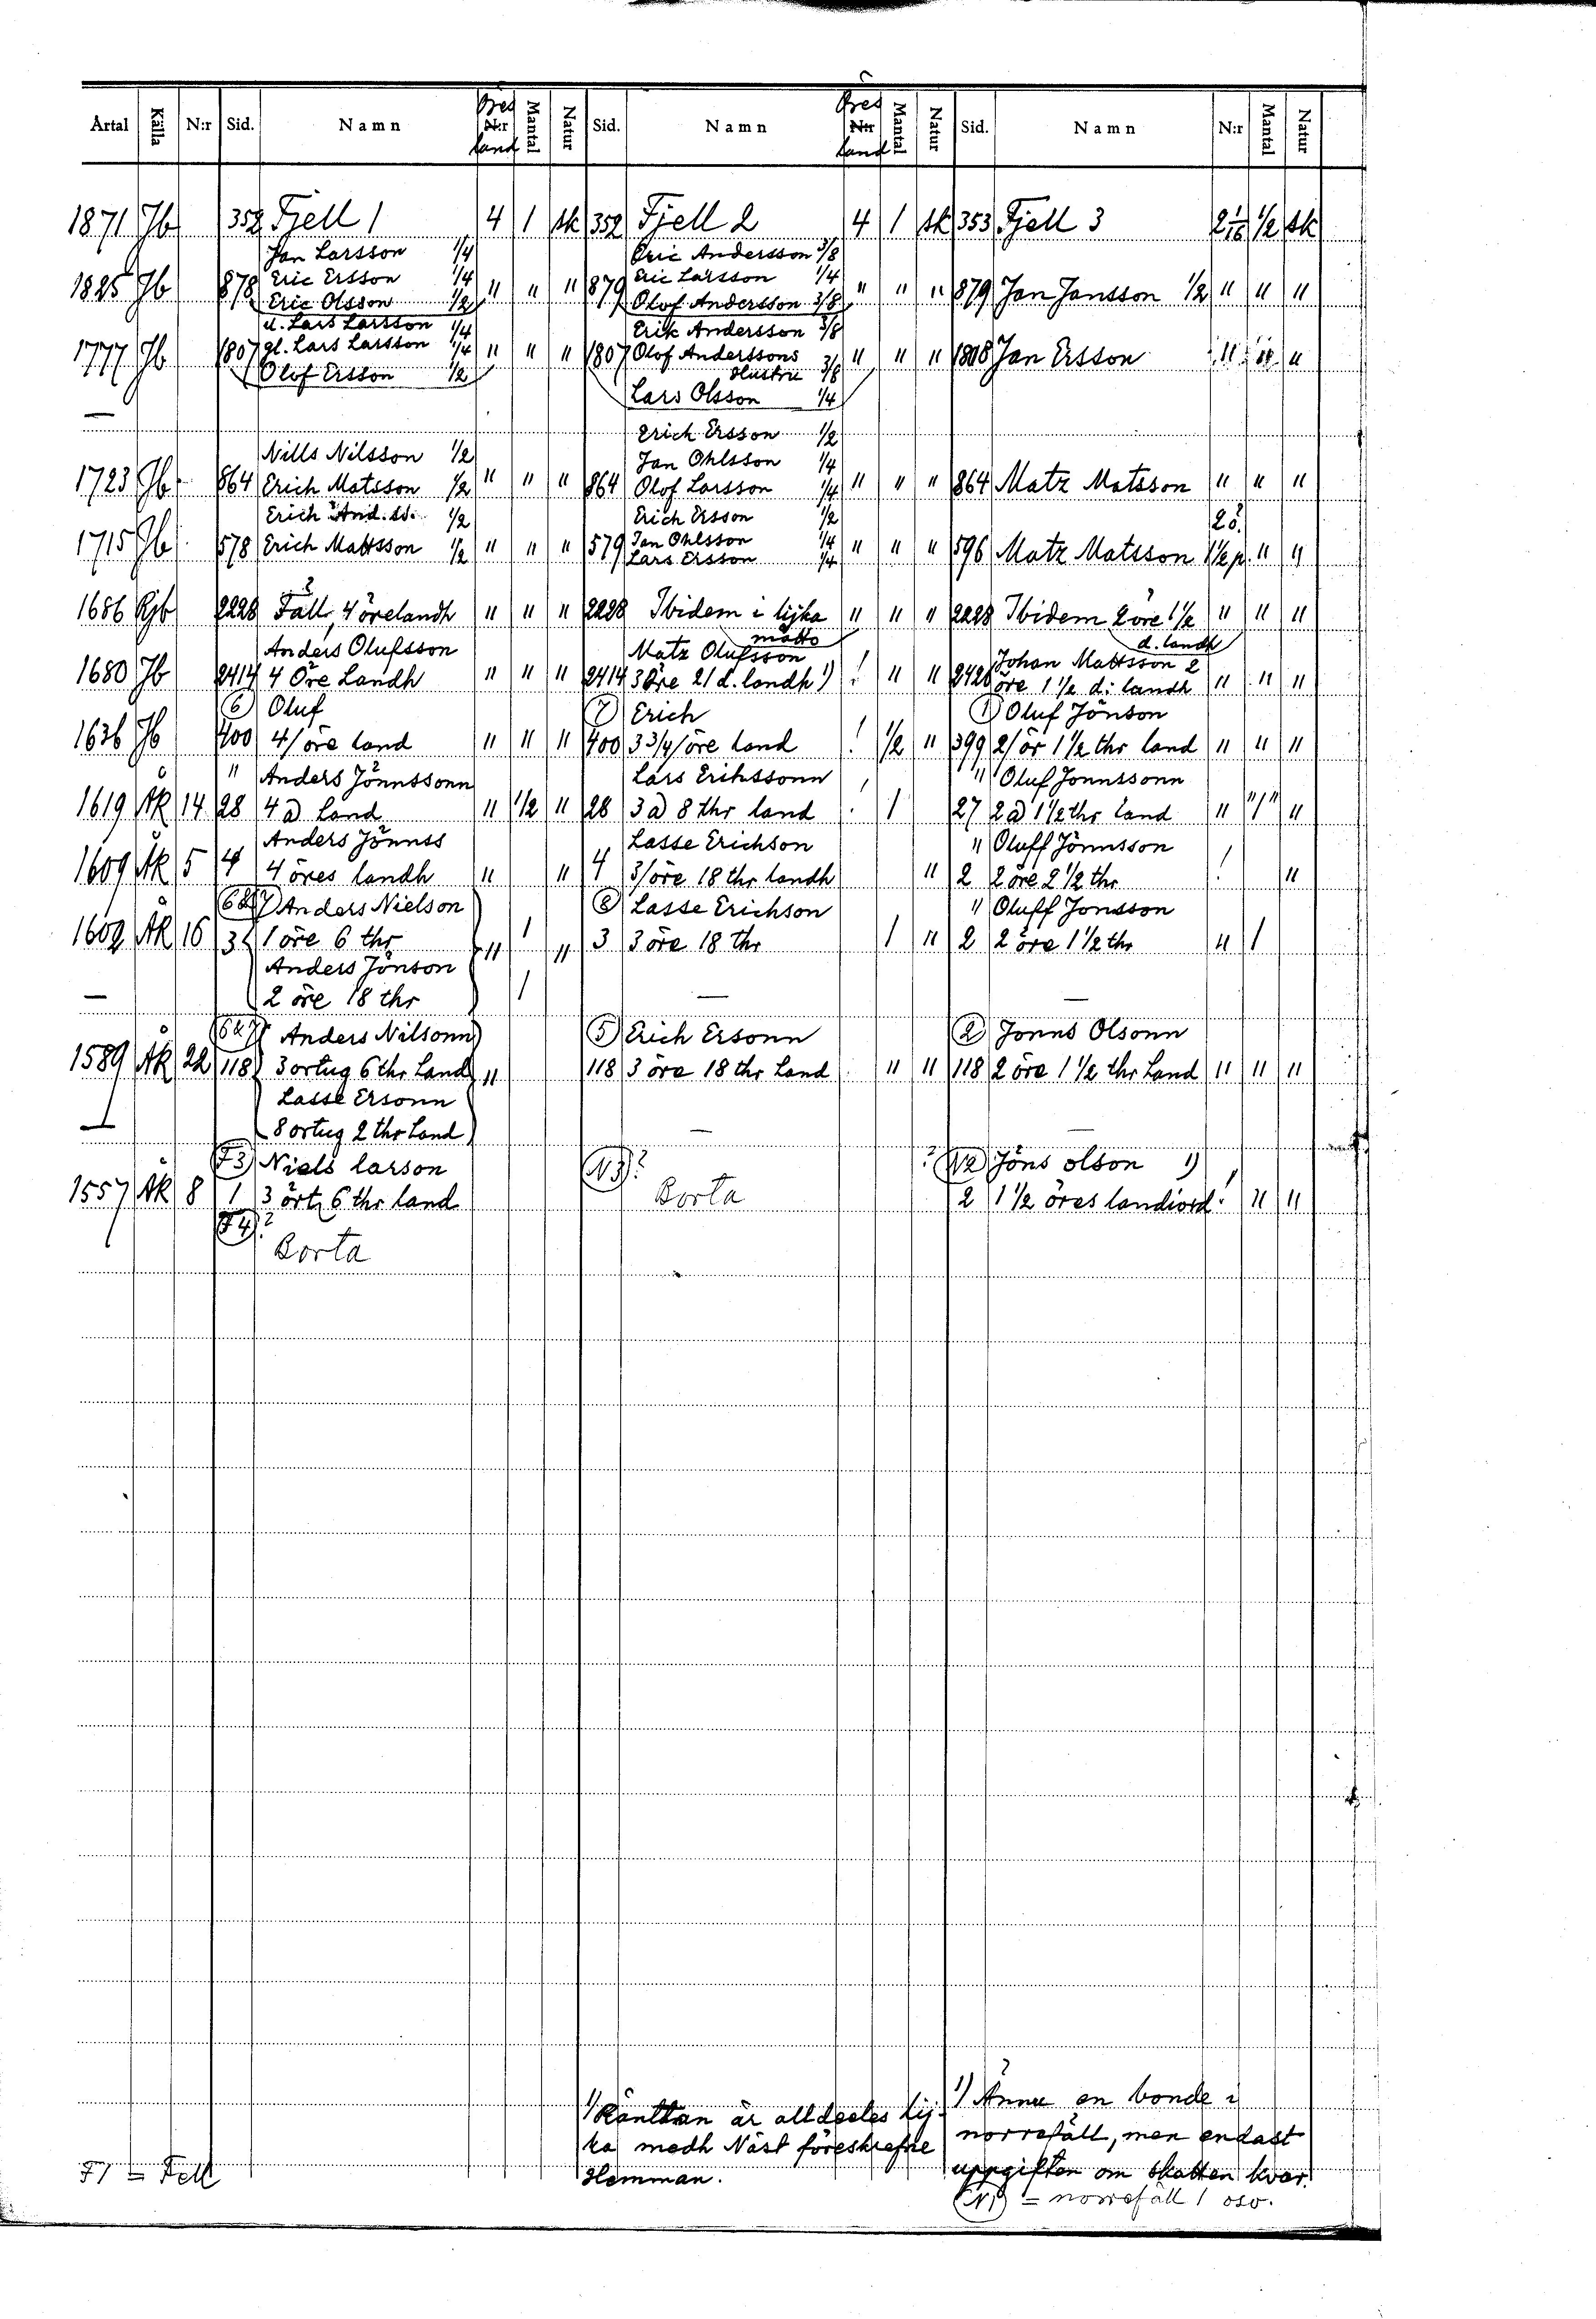 Årtal Källa N:r Sid. Namn Öres N:r land Mantal Natur Sid. Namn Öres N:r land Mantal Natur Sid. Namn N:r Mantal Natur
1871 Jb 352 Fjell 1 4 1 sk 352 Fjell 2 4 1 sk 353 Fjell 3 2 1/16 1/2 sk
Jan Larsson 1/4 Eric Andersson 3/8
1825 Jb 878 Eric Ersson 1/4 " " " 879 Eric Larsson 1/4 " " " 879 Jan Jansson 1/2 " " "
Eric Olsson 1/2 Olof Andersson 3/8
u. Lars Larsson 1/4 Erik Andersson 3/8
1777 Jb 1807 gl. Lars Larsson 1/4 " " " 1807 Olof Anderssons " " " 1808 Jan Ersson " " "
Olof Ersson 1/2 Hustru 3/8
— Lars Olsson 1/4
Erich Ersson 1/2
Nills Nilsson 1/2 Jan Ohlsson 1/4
1723 Jb 864 Erich Matsson 1/2 " " " 864 Olof Larsson 1/4 " " " 864 Matz Matsson " " "
Erich And. 1/2 Erich Ersson 1/2 2ö.
1715 Jb 578 Erich Mattsson 1/2 " " " 579 Jan Ohlsson 1/4 " " " 596 Matz Matsson 1 1/2 p. " "
Lars Ersson 1/4
1686 Rjb 2228 Fäll, 4 örelandh " " " 2228 Ibidem i lijka " " " 2228 Ibidem 2 öre 1 1/2 " " "
måtto d. landh
Anders Olufsson Matz Olufsson Johan Mattsson 2
1680 Jb 2414 4 Öre Landh " " " 2414 3 Öre 21 d. landh 1) ! " " 2426 öre 1 1/2 d: landh " " "
(6) Oluf (7) Erich (1) Oluf Jönson
1636 Jb 400 4/ öre land " " " 400 3 3/4/ öre land ! 1/2 " 399 2/ ör 1 1/2 thr land " " "
" Anders Jönnssonn Lars Erikssonn " Oluf Jonnssonn
1619 Åk 14 28 4 Land " 1/2 " 28 3 8 thr land ! 1 27 2 1 1/2 thr Land " "/" "
Anders Jönnss Lasse Erichson " Oluff Jönnsson
1609 Åk 5 4 4 öres landh " " 4 3/ öre 18 thr landh " 2 2 öre 2 1/2 thr ! "
(6&7) Anders Nielson (8) Lasse Erichson " Oluff Jonsson
1602 Åk 16 3 1 öre 6 thr " 1 " 3 3 öre 18 thr 1 " 2 2 öre 1 1/2 thr " 1
Anders Jönson
— 2 öre 18 thr 1 — —
(6&7) Anders Nilsonn (5) Erich Ersonn (2) Jonns Olsonn
1589 Åk 22 118 3 ortug 6 thr Land " 118 3 öre 18 thr Land " " 118 2 öre 1 1/2 thr Land " " "
Lasse Ersonn
8 ortug 2 thr Land — —
(F3) Niels larson (N3)? ? (N2) Jöns olson 1)
1557 Åk 8 1 3 örtz 6 thr land Borta 2 1 1/2 öres landiord ! " "
(F4)?
Borta
1) Räntan är alldeeles lij-
ka medh Näst föreskrefne
Hemman.
1) Ännu en bonde i
norrefäll, men endast
uppgiften om skatten kvar.
(N1) = norrefäll 1 osv.
F1 = Fell